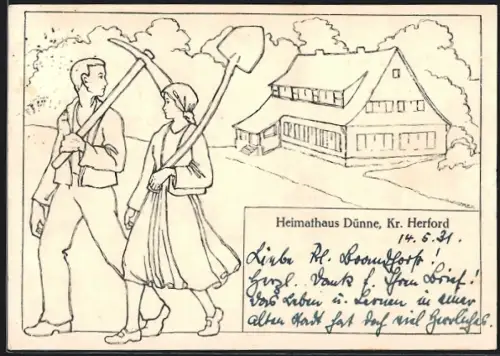 Heimathaus Dünne, Kr. Herford
14.5.31.
Liebe Frl.
Herzl. Dank f. Ihren Brief!
Das Leben u. Lernen in einer
alten Stadt hat doch viel Herrliches.